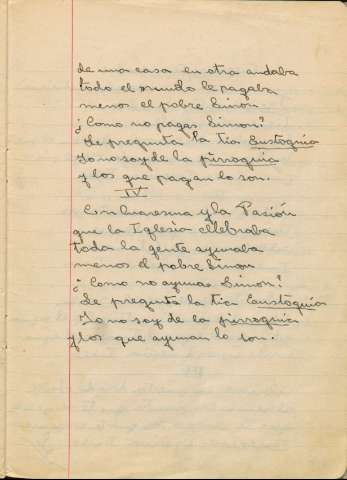 de una casa en otra andaba
todo el mundo le pagaba
menos el pobre Simon
¿Como no pagas Simon?
Le pregunta la tia Eustoquia
Yo no soy de la pirroquia
y los que pagan lo son.
IV
En Cuaresma y la Pasión
que la Iglesia cllebraba
toda la gente ayunaba
menos el pobre Simon
¿Como no ayunas Simon?
Le pregunta la tia Eustoquia
Yo no soy de la pirroquia
y los que ayunan lo son.